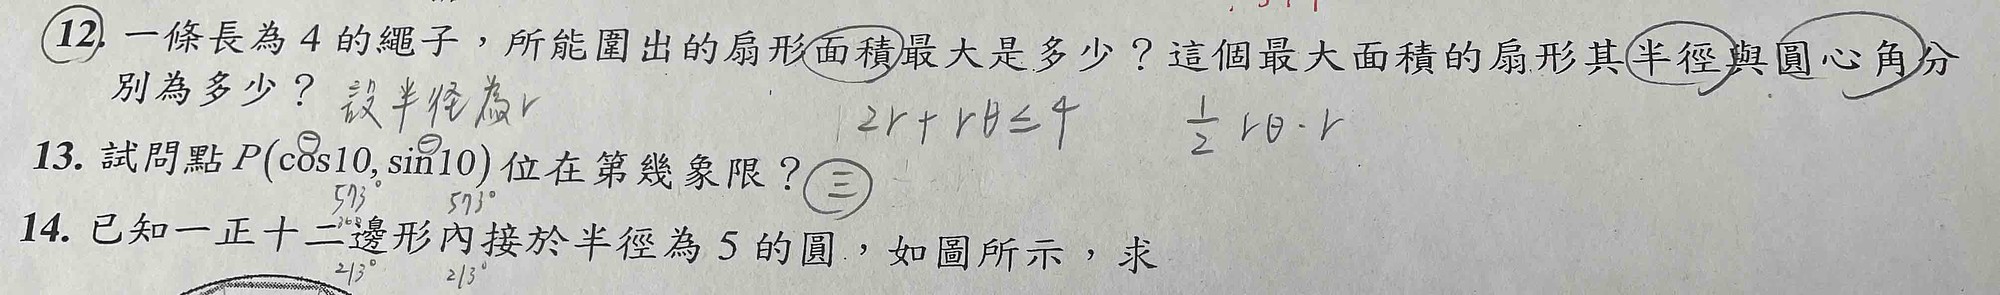 12. 一條長為 4 的繩子，所能圍出的扇形面積最大是多少？這個最大面積的扇形其半徑與圓心角分
別為多少？ 設半径為r 2r + rθ ≤ 4 1/2 rθ · r
13. 試問點 P(cos10, sin10) 位在第幾象限？ 三
573° 573°
14. 已知一正十二邊形內接於半徑為 5 的圓，如圖所示，求
213° 213°